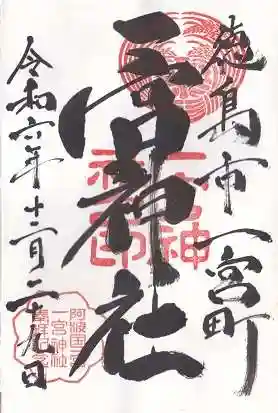 徳島市一宮町
一宮神社
令和六年十二月二十九日
一宮神社印
阿波国一宮
一宮神社